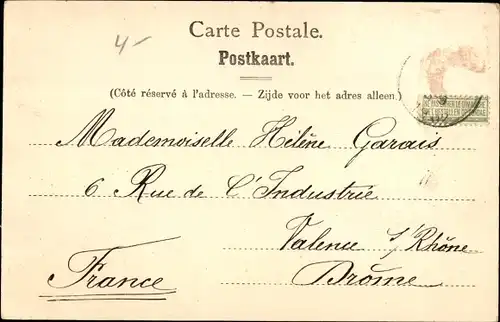 4-
Carte Postale.
Postkaart.
(Côté réservé à l'adresse. — Zijde voor het adres alleen.)
Mademoiselle Hélène Garais
6 Rue de l'Industrie
Valence s/Rhône
France
Drôme